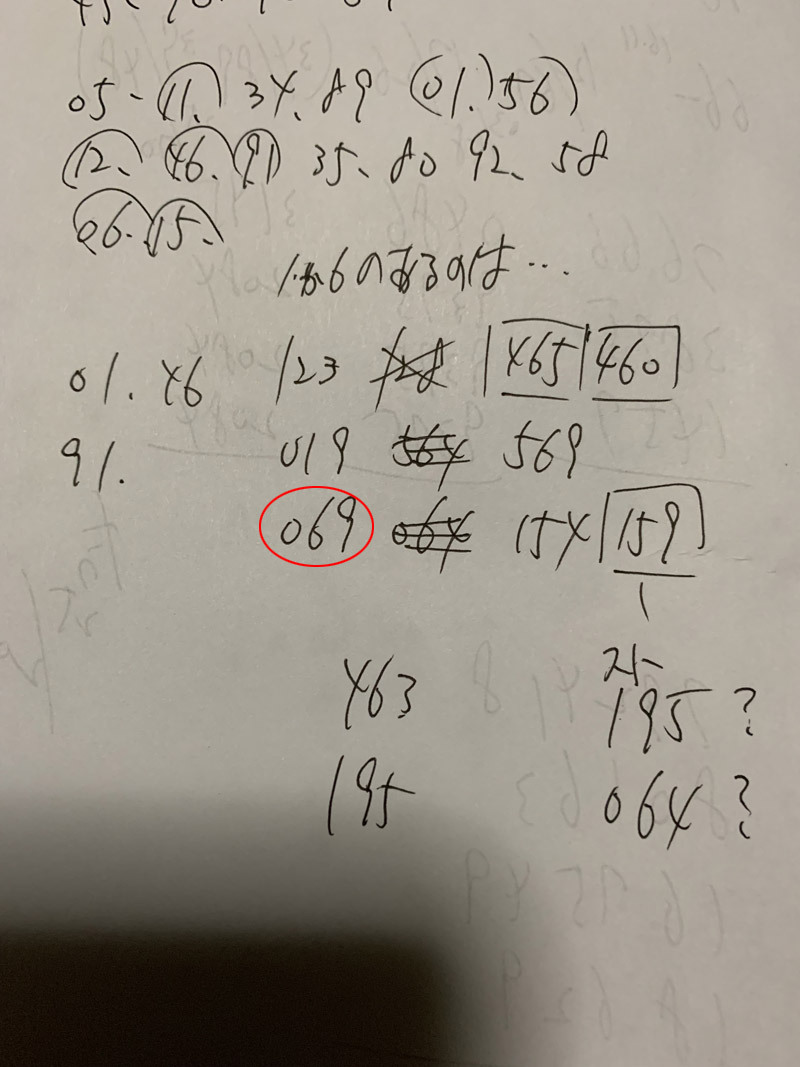 05-11. 34. 89 01. 56
12. 46. 91 35. 80 92. 58
06. 15.
1か6のあるのは…
01. 46 123 128 465 460
91. 019 564 569
069 064 154 159
463 195?
195 064?